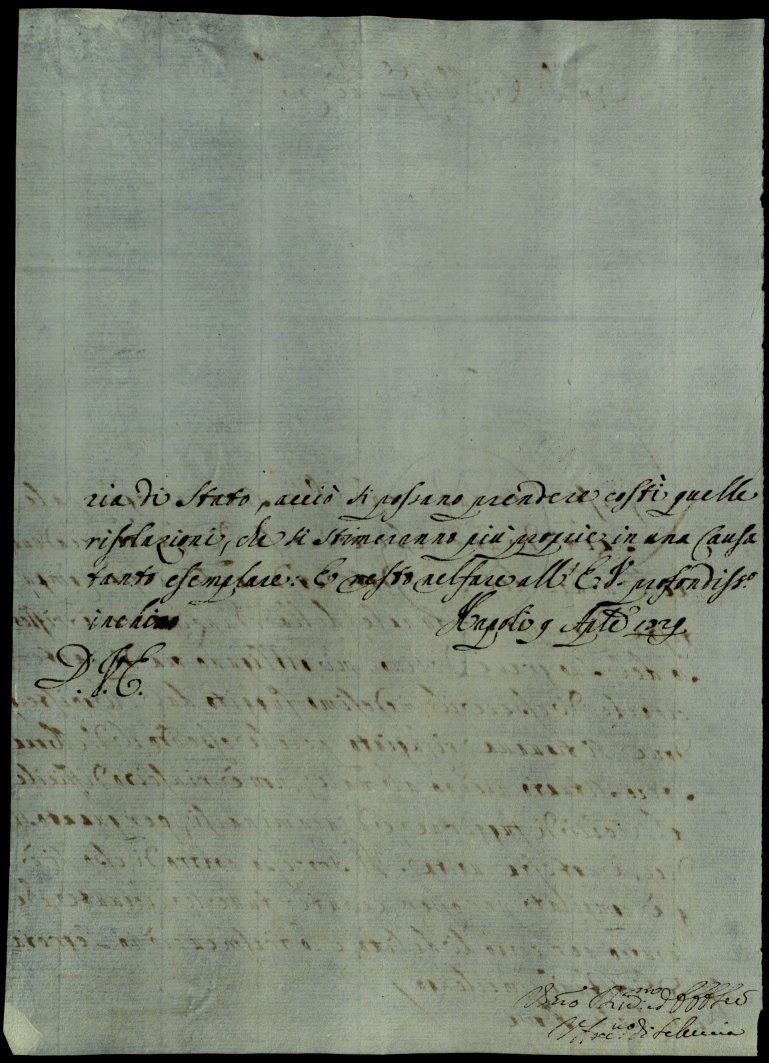 ria di Stato, acciò si possano prendere costì quelle
risolazioni, che si stimeranno più proprie in una Causa
tanto esemplare: E resto nel fare all' E. V. profondiss.o
inchino Napoli 9 Aple
D. V. E.
Arc. di Seleucia